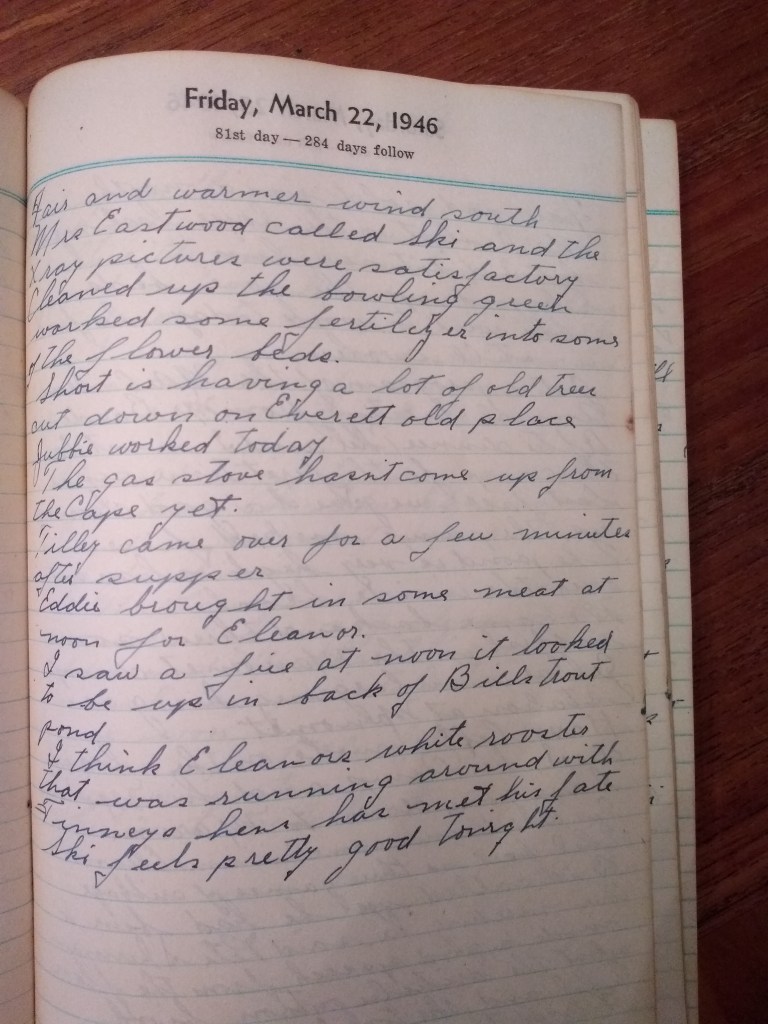 Friday, March 22, 1946
81st day — 284 days follow
Fair and warmer wind south
Mrs Eastwood called Ski and the
Xray pictures were satisfactory
Cleaned up the bowling green
worked some fertilizer into some
of the flower beds.
Short is having a lot of old trees
cut down on Everett old place
Jubbie worked today
The gas stove hasnt come up from
the Cape yet.
Tilley came over for a few minutes
after supper
Eddie brought in some meat at
noon for Eleanor.
I saw a fire at noon it looked
to be up in back of Bills trout
pond
I think Eleanors white rooster
that was running around with
Tinneys hens has met his fate
Ski feels pretty good tonight.